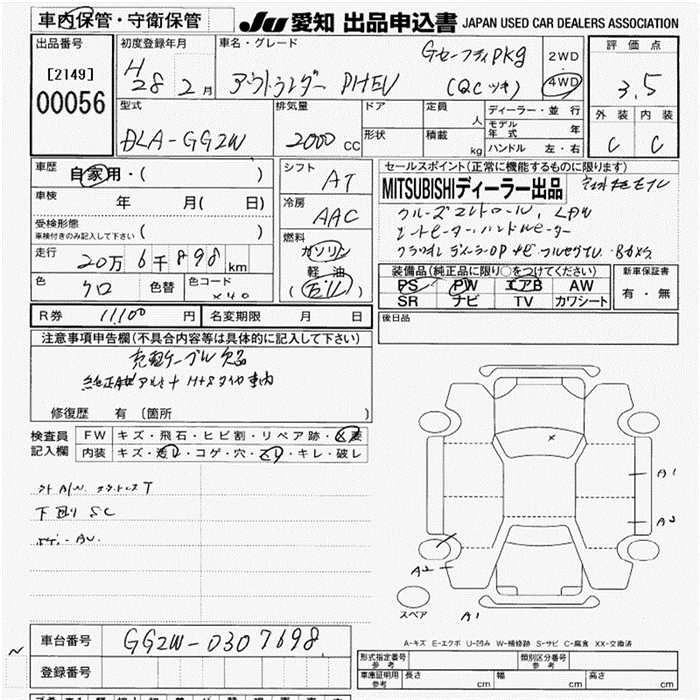 車内保管・守衛保管
JU 愛知 出品申込書 JAPAN USED CAR DEALERS ASSOCIATION
出品番号
[2149]
00056
初度登録年月
H 28 2月
車名・グレード
アウトランダー PHEV
Gセーフティpkg
(QCツキ)
2WD
4WD
評価点
3.5
外装 内装
C C
型式
DLA-GG2W
排気量
2000 cc
ドア
形状
定員 人
積載 kg
ディーラー・並行
モデル年式 年
ハンドル 左・右
車歴
自家用・( )
車検 年 月( 日)
受検形態
車検付きのみ記入して下さい ( )
走行
20万6千898 km
色 クロ 色替 色コード X40
シフト AT
冷房 AAC
燃料
ガソリン
軽油
セールスポイント(正常に機能するものに限ります)
MITSUBISHIディーラー出品
装備品(純正品に限り○をつけてください)
PS PW エアB AW
SR ナビ TV カワシート
新車保証書
有・無
R券 11,100 円
名変期限 月 日
後日品
注意事項申告欄(不具合内容等は具体的に記入して下さい)
充電ケーブル欠品
修復歴 有 (箇所 )
検査員記入欄
FW キズ・飛石・ヒビ割・リペア跡・X要
内装 キズ・汚レ・コゲ・穴・スレ・キレ・破レ
下廻り SC
A1
A2
A2
A1
スペア
A-キズ E-エクボ U-凹み W-補修跡 S-サビ C-腐食 XX-交換済
車台番号 GG2W-0307698
登録番号
形式指定番号 参考
類別区分番号 参考
車庫証明用 参考 長さ cm 幅 cm 高さ cm